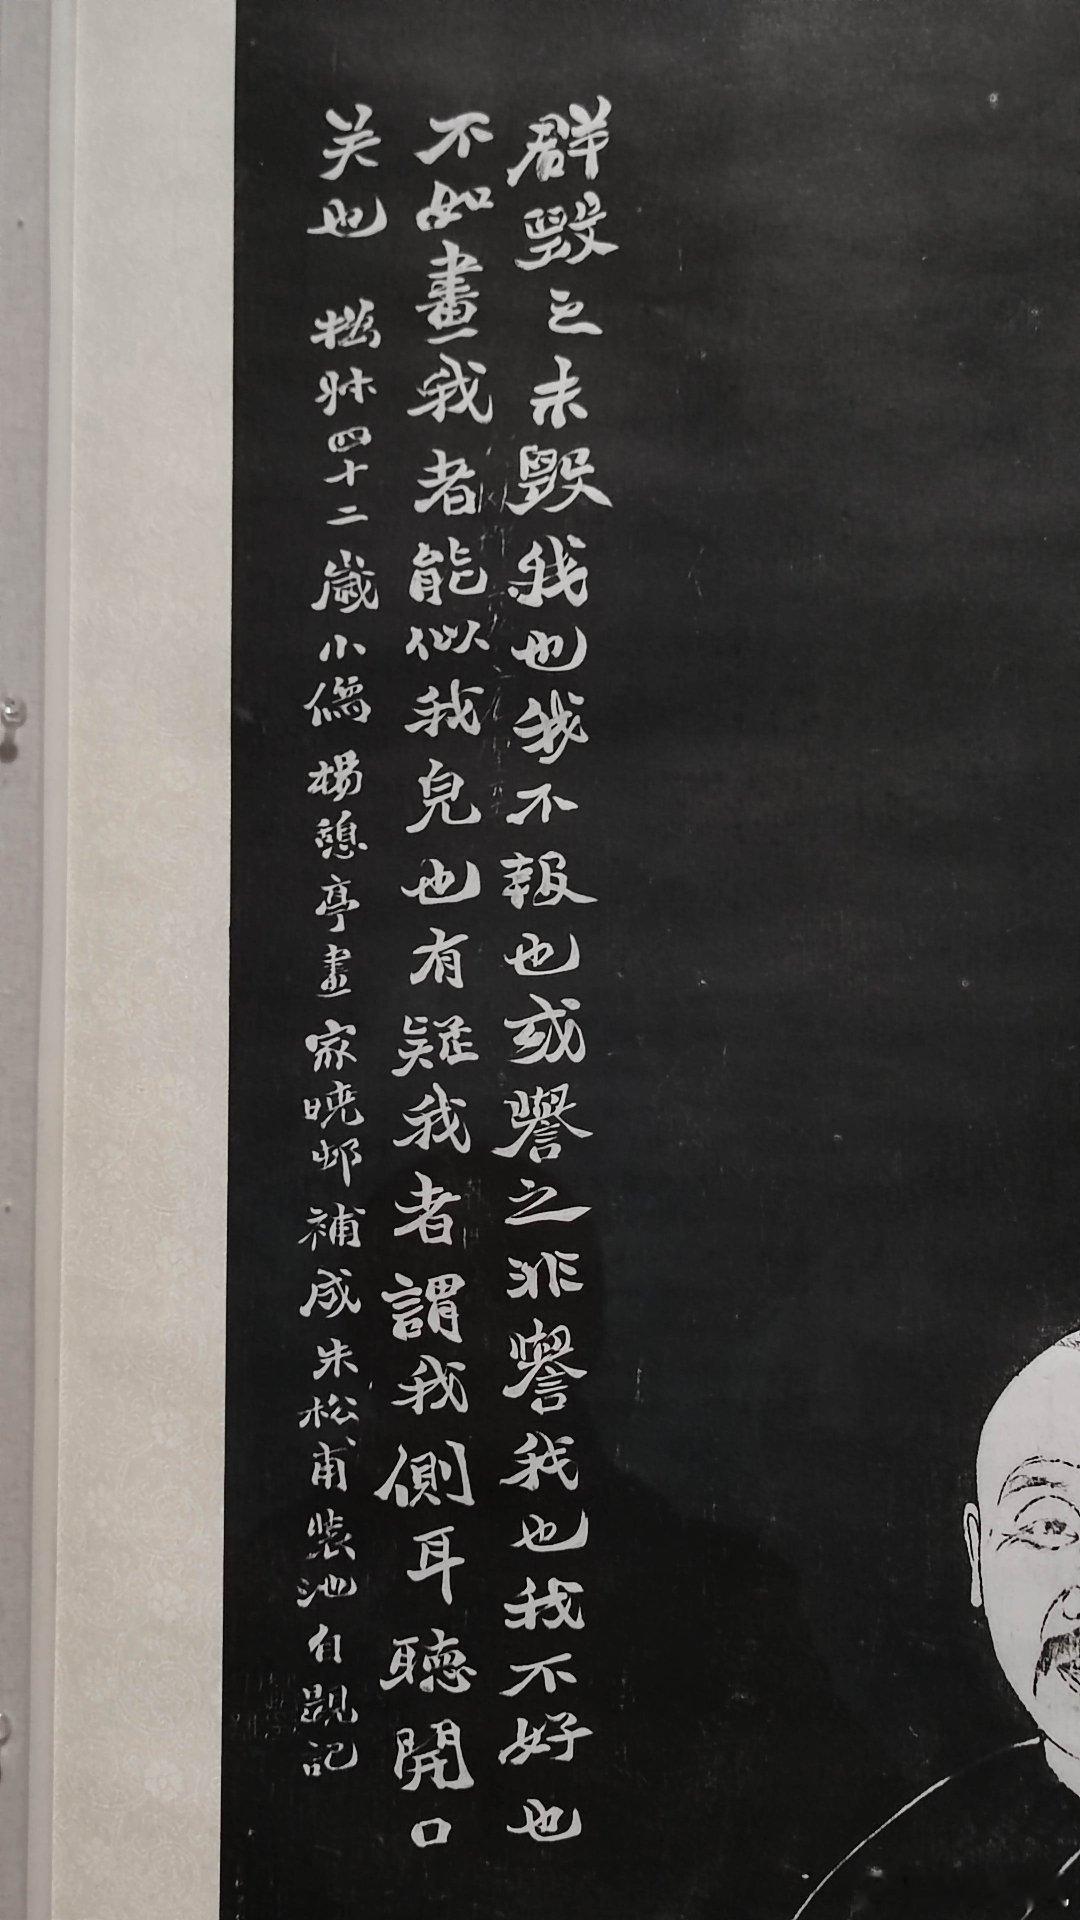 群毀之未毀我也我不報也或譽之非譽我也我不好也
不如畫我者能似我皃也有疑我者謂我側耳聽開口
笑也 㧽叔四十二歲小像楊憩亭畫家曉邨補成朱松甫裝池自題記